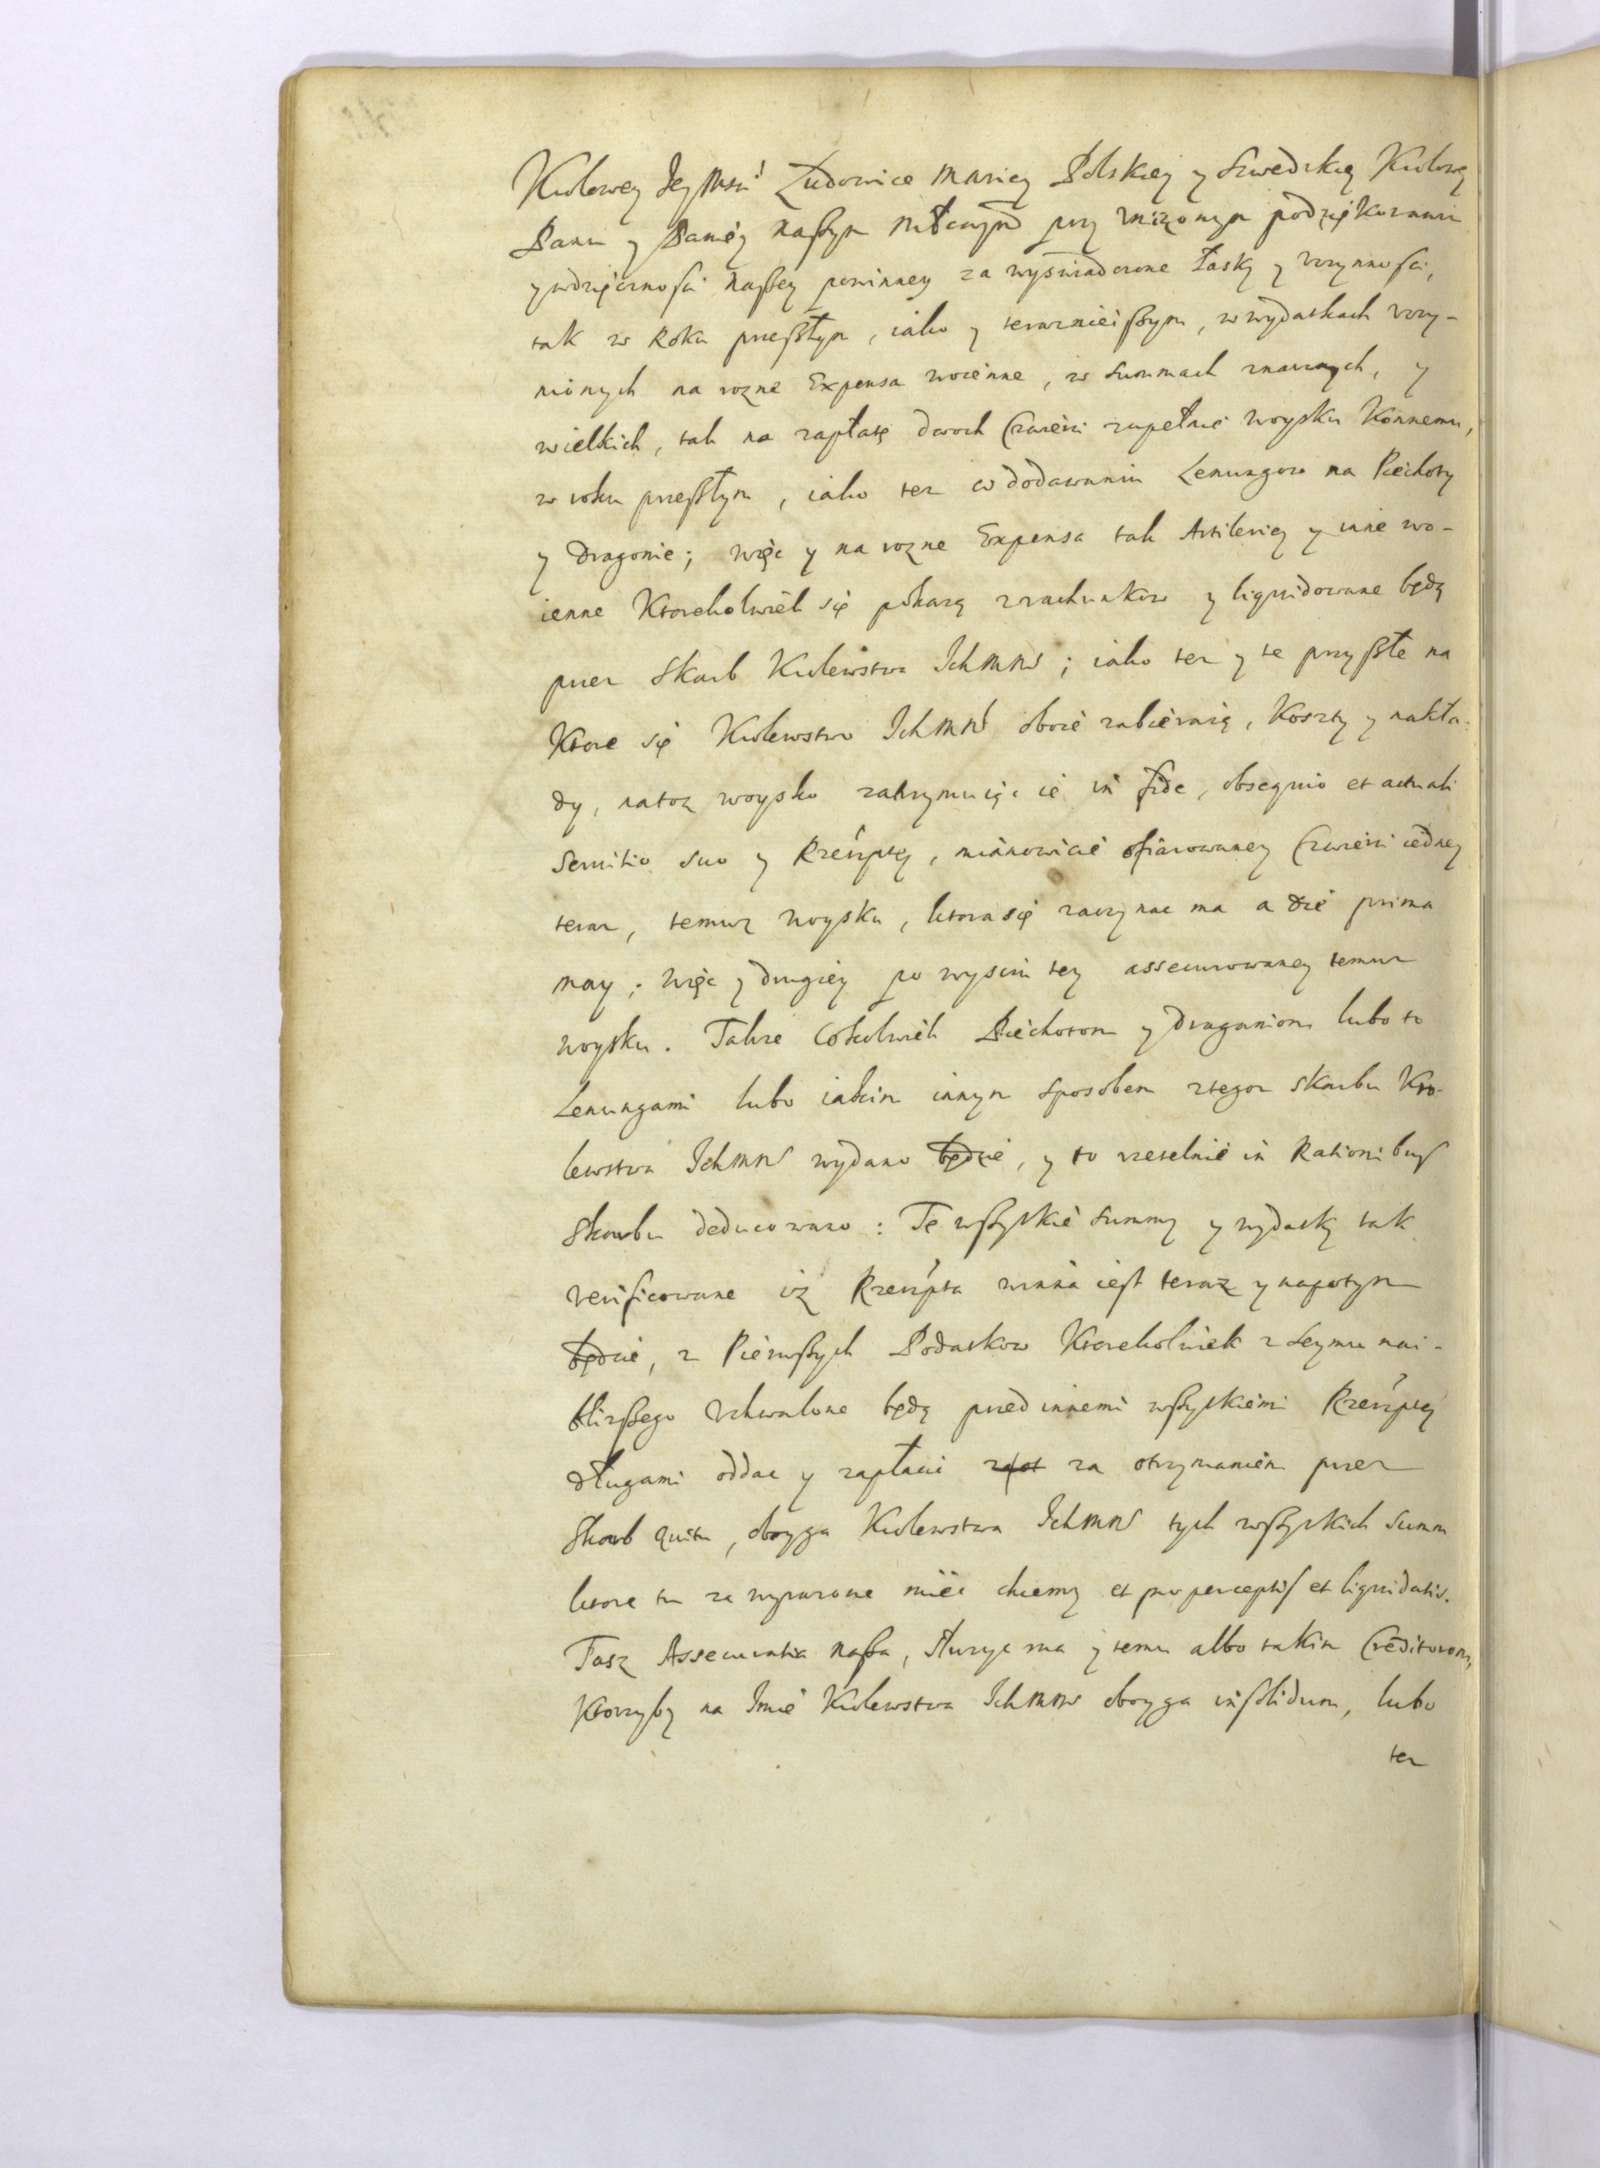 Krolowey Jey Msci Ludowice Mariey Polskiey y Szwedzkiey Krolowey
Panu y Paniey naszym Młciwym przy vnizonym podziękowaniu
y wdzięcznosci naszey powinney za wyswiadczone łaskę y vczynnosci,
tak w Roku przeszłym, iako y teraznieiszym, w wydatkach vczy-
nionych na rozne Expensa woienne, w summach znacznych, y
wielkich, tak na zapłatę dwoch Czwierci zupełnie woysku Konnemu,
w roku przeszłym, iako tez w dodawaniu Lenungow na Piechoty
y Dragonie; więc y na rozne Expensa tak Artileriey y inne wo-
ienne Ktorekolwiek się pokazą z rachunkow y liquidowane będą
przez Skarb Krolewstwa IchMMw; iako tez y te przyszłe na
Ktore się Krolewstwo IchMM oboie zabieraią, Koszty y nakła-
dy, na toz woysko zatrzymuiąc ie in fide, obsequio et actuali
seruitio suo y Rzeczyptey, mianowicie ofiarowaney Czwierci iedney
teraz, temuz woysku, ktora się zaczynac ma a die prima
may; więc y drugiey po wysciu tey assecurowaney temuz
woysku. Takze Cokolwiek Piechotom y Dragoniom lubo to
Lenungami lubo iakim innym sposobem z tegoz skarbu Kro-
lewstwa IchMMw wydano będzie, y to rzetelnie in Rationibus
Skarbu deducowano: Te wszytkie summy y wydatky tak
verificowane iz Rzeczpta winna iest teraz y napotym
będzie, z Pierwszych Podatkow Ktorekolwiek z Seymu nai-
blizszego vchwalone będą przed innemi wszytkiemi Rzeczyptey
długami oddac y zapłacic za otrzymaniem przez
Skarb quitu, oboyga Krolewstwa IchMMw tych wszytkich summ
ktore tu za wyrazone miec chcemy et pro perceptis et liquidatis.
Tasz Assecuratia nasza, słuzyc ma y temu albo takim Creditorom,
Ktorzyby na Imie Krolewstwa IchMMw oboyga in solidum, lubo
tez